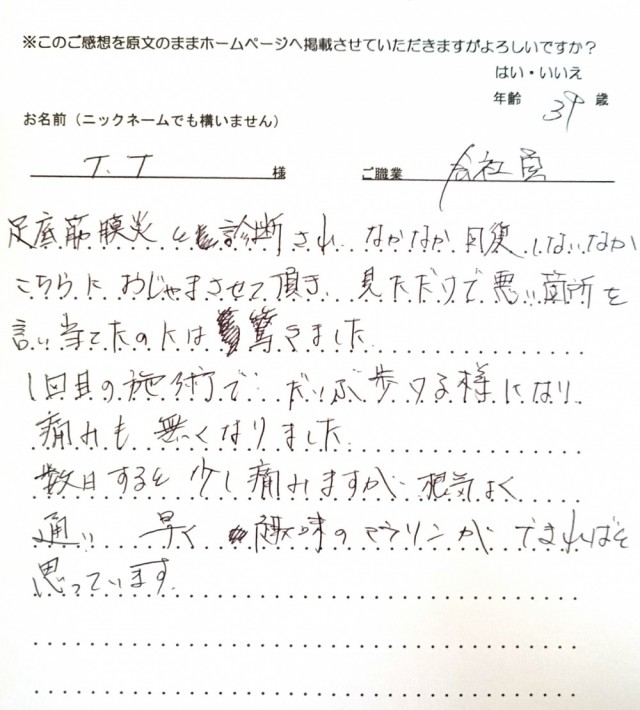 ※このご感想を原文のままホームページへ掲載させていただきますがよろしいですか？
はい・いいえ
年齢 39 歳
お名前（ニックネームでも構いません）
T.T 様 ご職業 会社員
足底筋膜炎と診断され なかなか回復しないなか
こちらにおじゃまさせて頂き 見ただけで悪い箇所を
言い当てたのには驚きました
1回目の施術で だいぶ歩ける様になり
痛みも無くなりました
数日すると少し痛みますが 根気よく
通い 早く 趣味のマラソンができればと
思っています